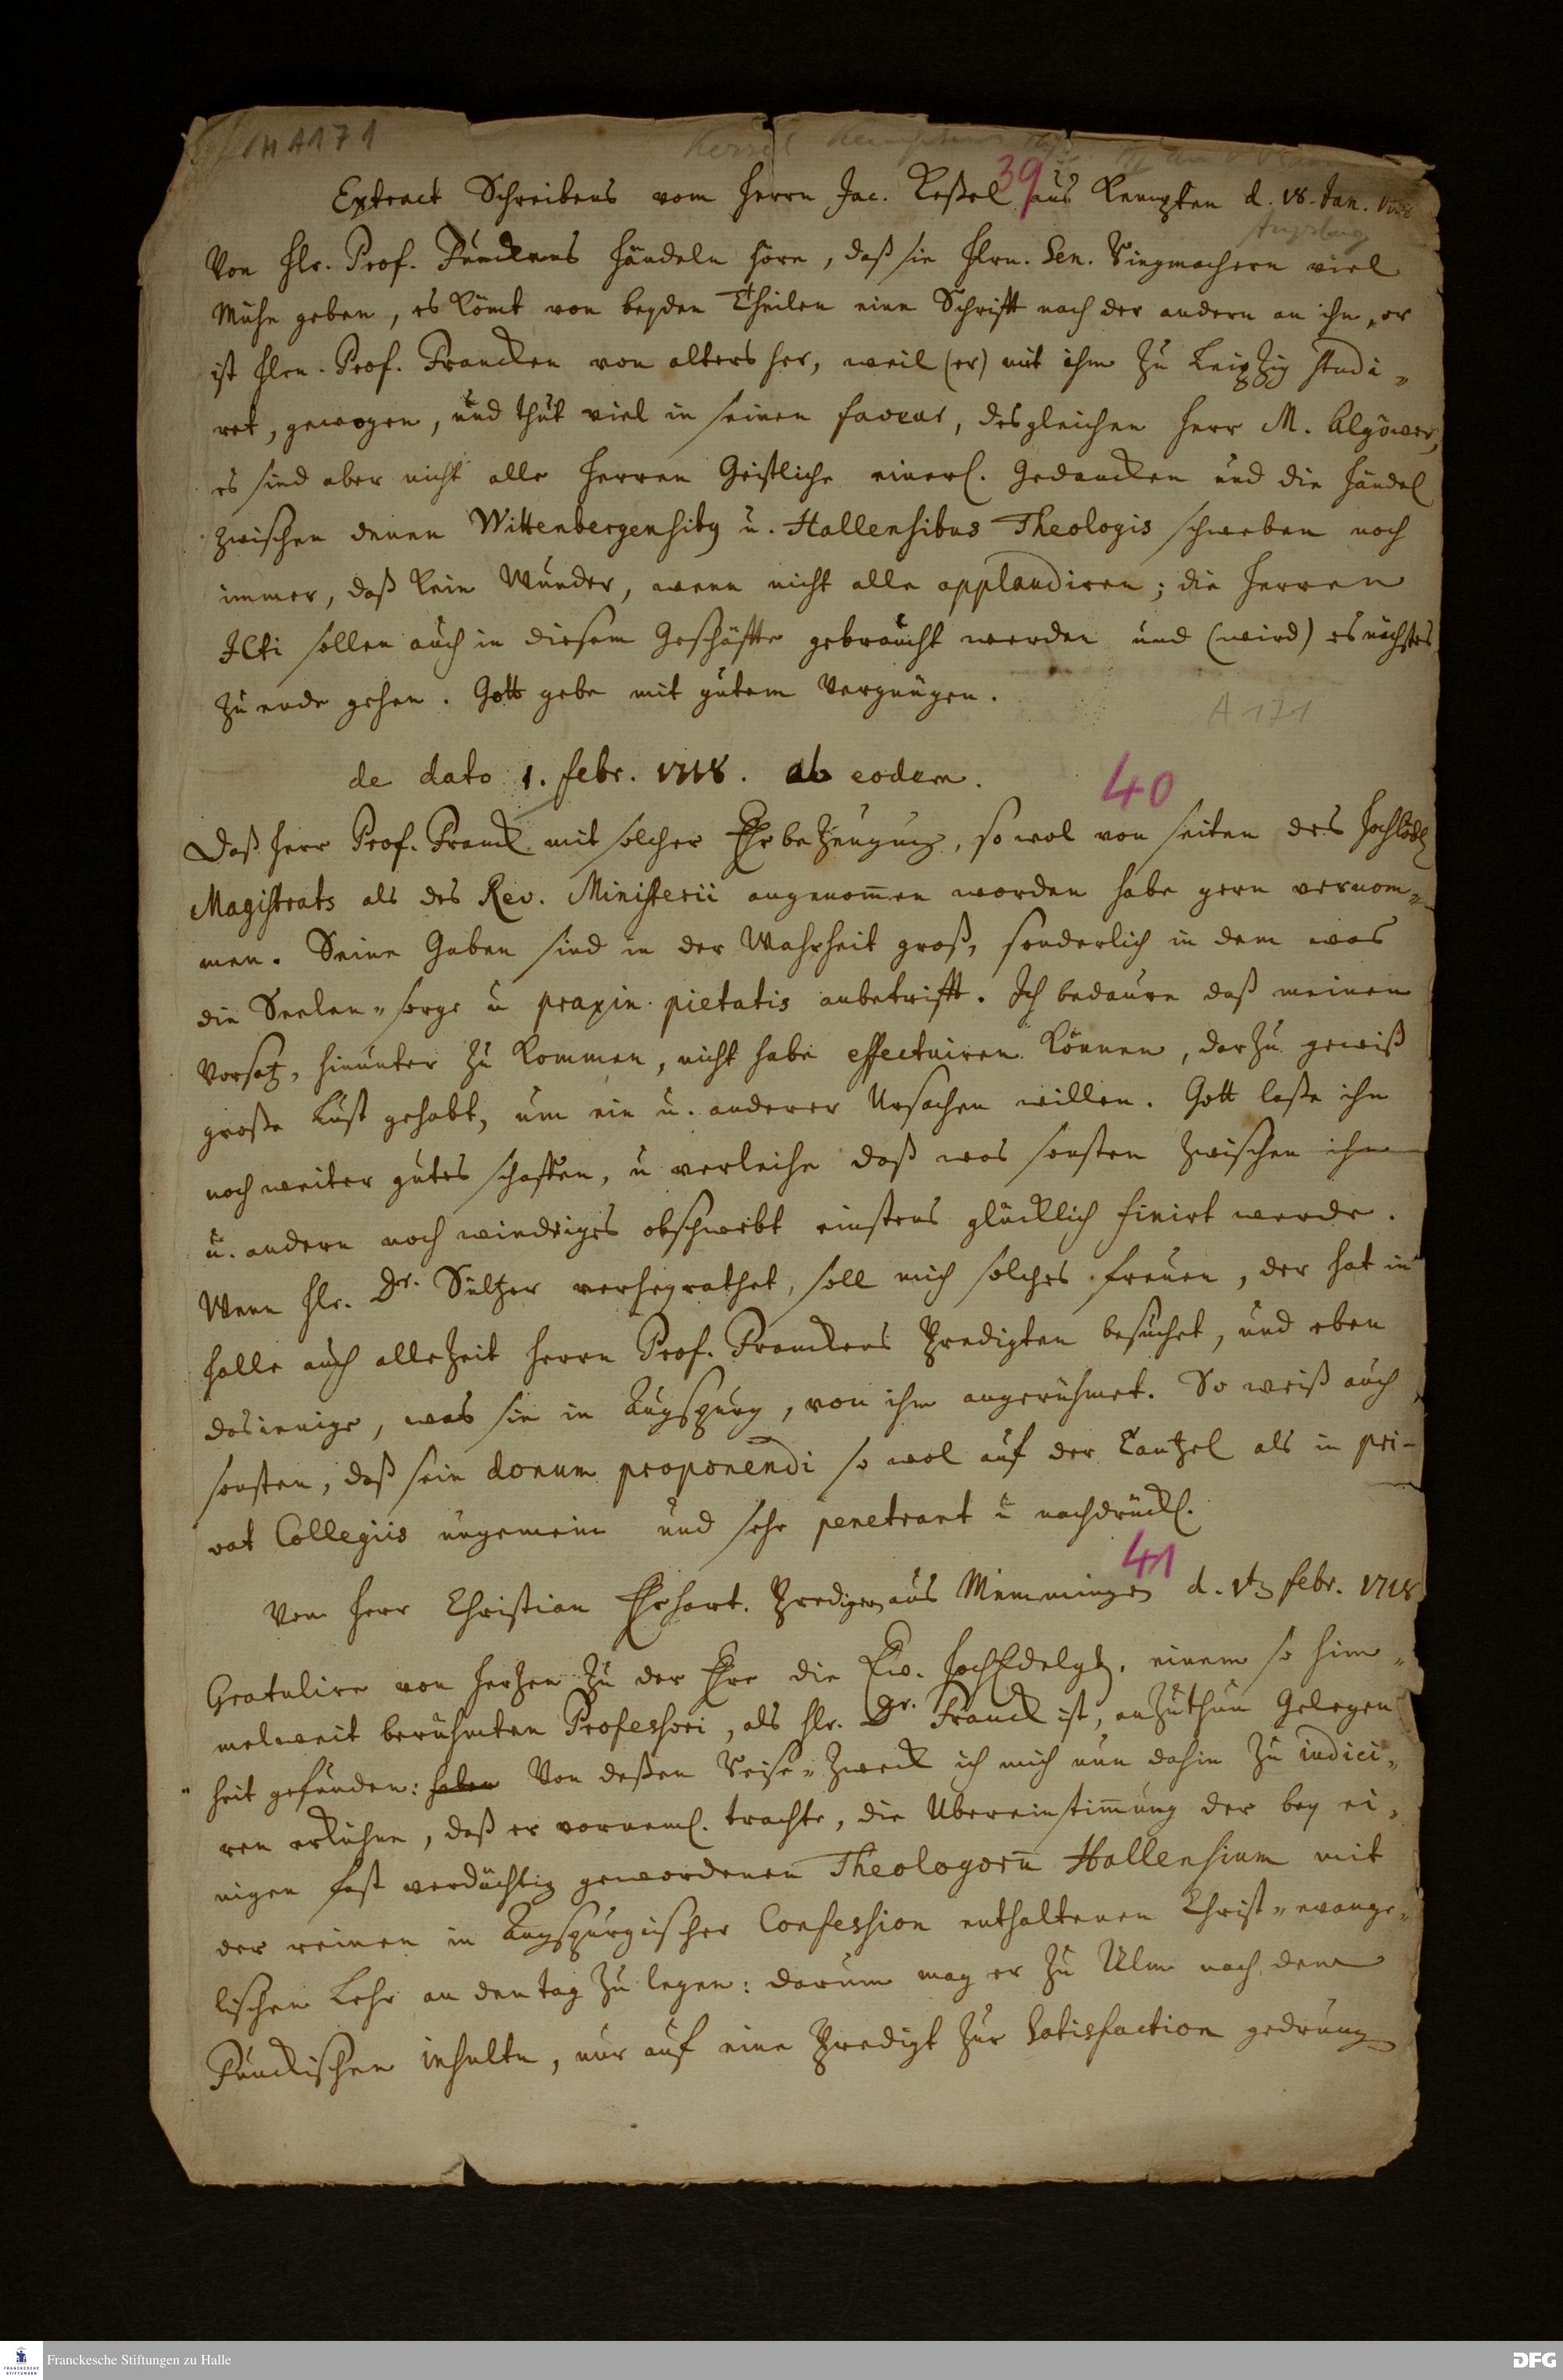 H A171
39
Extract Schreibens vom Herrn Jac. Keßel aus Kempten d. 18. Jan. 1718
Augsburg
Von Hr. Prof. Funckens Händeln höre, daß sie Hrn. Sen. Ringmachern viel
Mühe geben, es kömt von beyden Theilen eine Schrifft nach der andern an ihn, er
ist Hrn. Prof. Francken von alters her, weil (er) mit ihm zu Leipzig studi-
ret, gewogen, und thut viel in seinen faveur, desgleichen Herr M. Algöwer,
es sind aber nicht alle Herren Geistliche einerl. Gedancken und die Händel
zwischen denen Wittenbergensibq u. Hallensibus Theologis schweben noch
immer, daß kein Wunder, wenn nicht alle applaudiren; die Herren
JCti sollen auch in diesem Geschäffte gebraucht werden und (wird) es nächstes
zu ende gehen. Gott gebe mit gutem Vergnügen.
A 171
de dato 1. febr. 1718. ab eodem.
40
Daß Herr Prof. Franck mit solcher Ehrbezeugung, so wol von seiten des Hochlöbl
Magistrats als des Rev. Ministerii angenom̄en worden habe gern vernom-
men. Seine Gaben sind in der Wahrheit groß, sonderlich in dem was
die Seelen-sorge u praxin pietatis anbetrifft. Ich bedaure daß meinen
Vorsatz, hinunter zu kommen, nicht habe effectuiren können, darzu gewiß
große Lust gehabt, um ein u. anderer Ursachen willen. Gott laße ihn
noch weiter gutes schaffen, u verleihe daß was sonsten zwischen ihm
u. andern noch wiedriges obschwebt einstens glücklich finirt werde.
Wenn Hr. Dr. Sultzer verheyrathet, soll mich solches freuen, der hat in
Halle auch allezeit Herrn Prof. Franckens Predigten besuchet, und eben
dasienige, was sie in Augspurg, von ihm angerühmet. So weiß auch
sonsten, daß sein donum proponendi so wol auf der Cantzel als in pri-
vat Collegiis ungemein und sehr penetrant u nachdrückl.
41
Von Herr Christian Ehrhart. Prediger aus Memmingen d. febr. 1718
Gratulire von Herzen zu der Ehre die Ew. HochEdelgb. einem so him-
melweit berühmten Professori, als Hr. Dr. Franck ist, anzuthun Gelegen
heit gefunden: haben Von deßen Reise-Zweck ich mich nun dahin zu iudici-
ren erkühne, daß er vorneml. trachte, die Ubereinstim̄ung der bey ei-
nigen fast verdächtig gewordenen Theologorū Hallensium mit
der reinen in Augspurgischer Confession enthaltenen Christ-evange-
lischen Lehr an den tag zu legen: darum mag er zu Ulm nach dem
Funckischen insulte, nur auf eine Predigt zur Satisfaction gedrung
Franckesche Stiftungen zu Halle
FRANCKESCHE
STIFTUNGEN
DFG